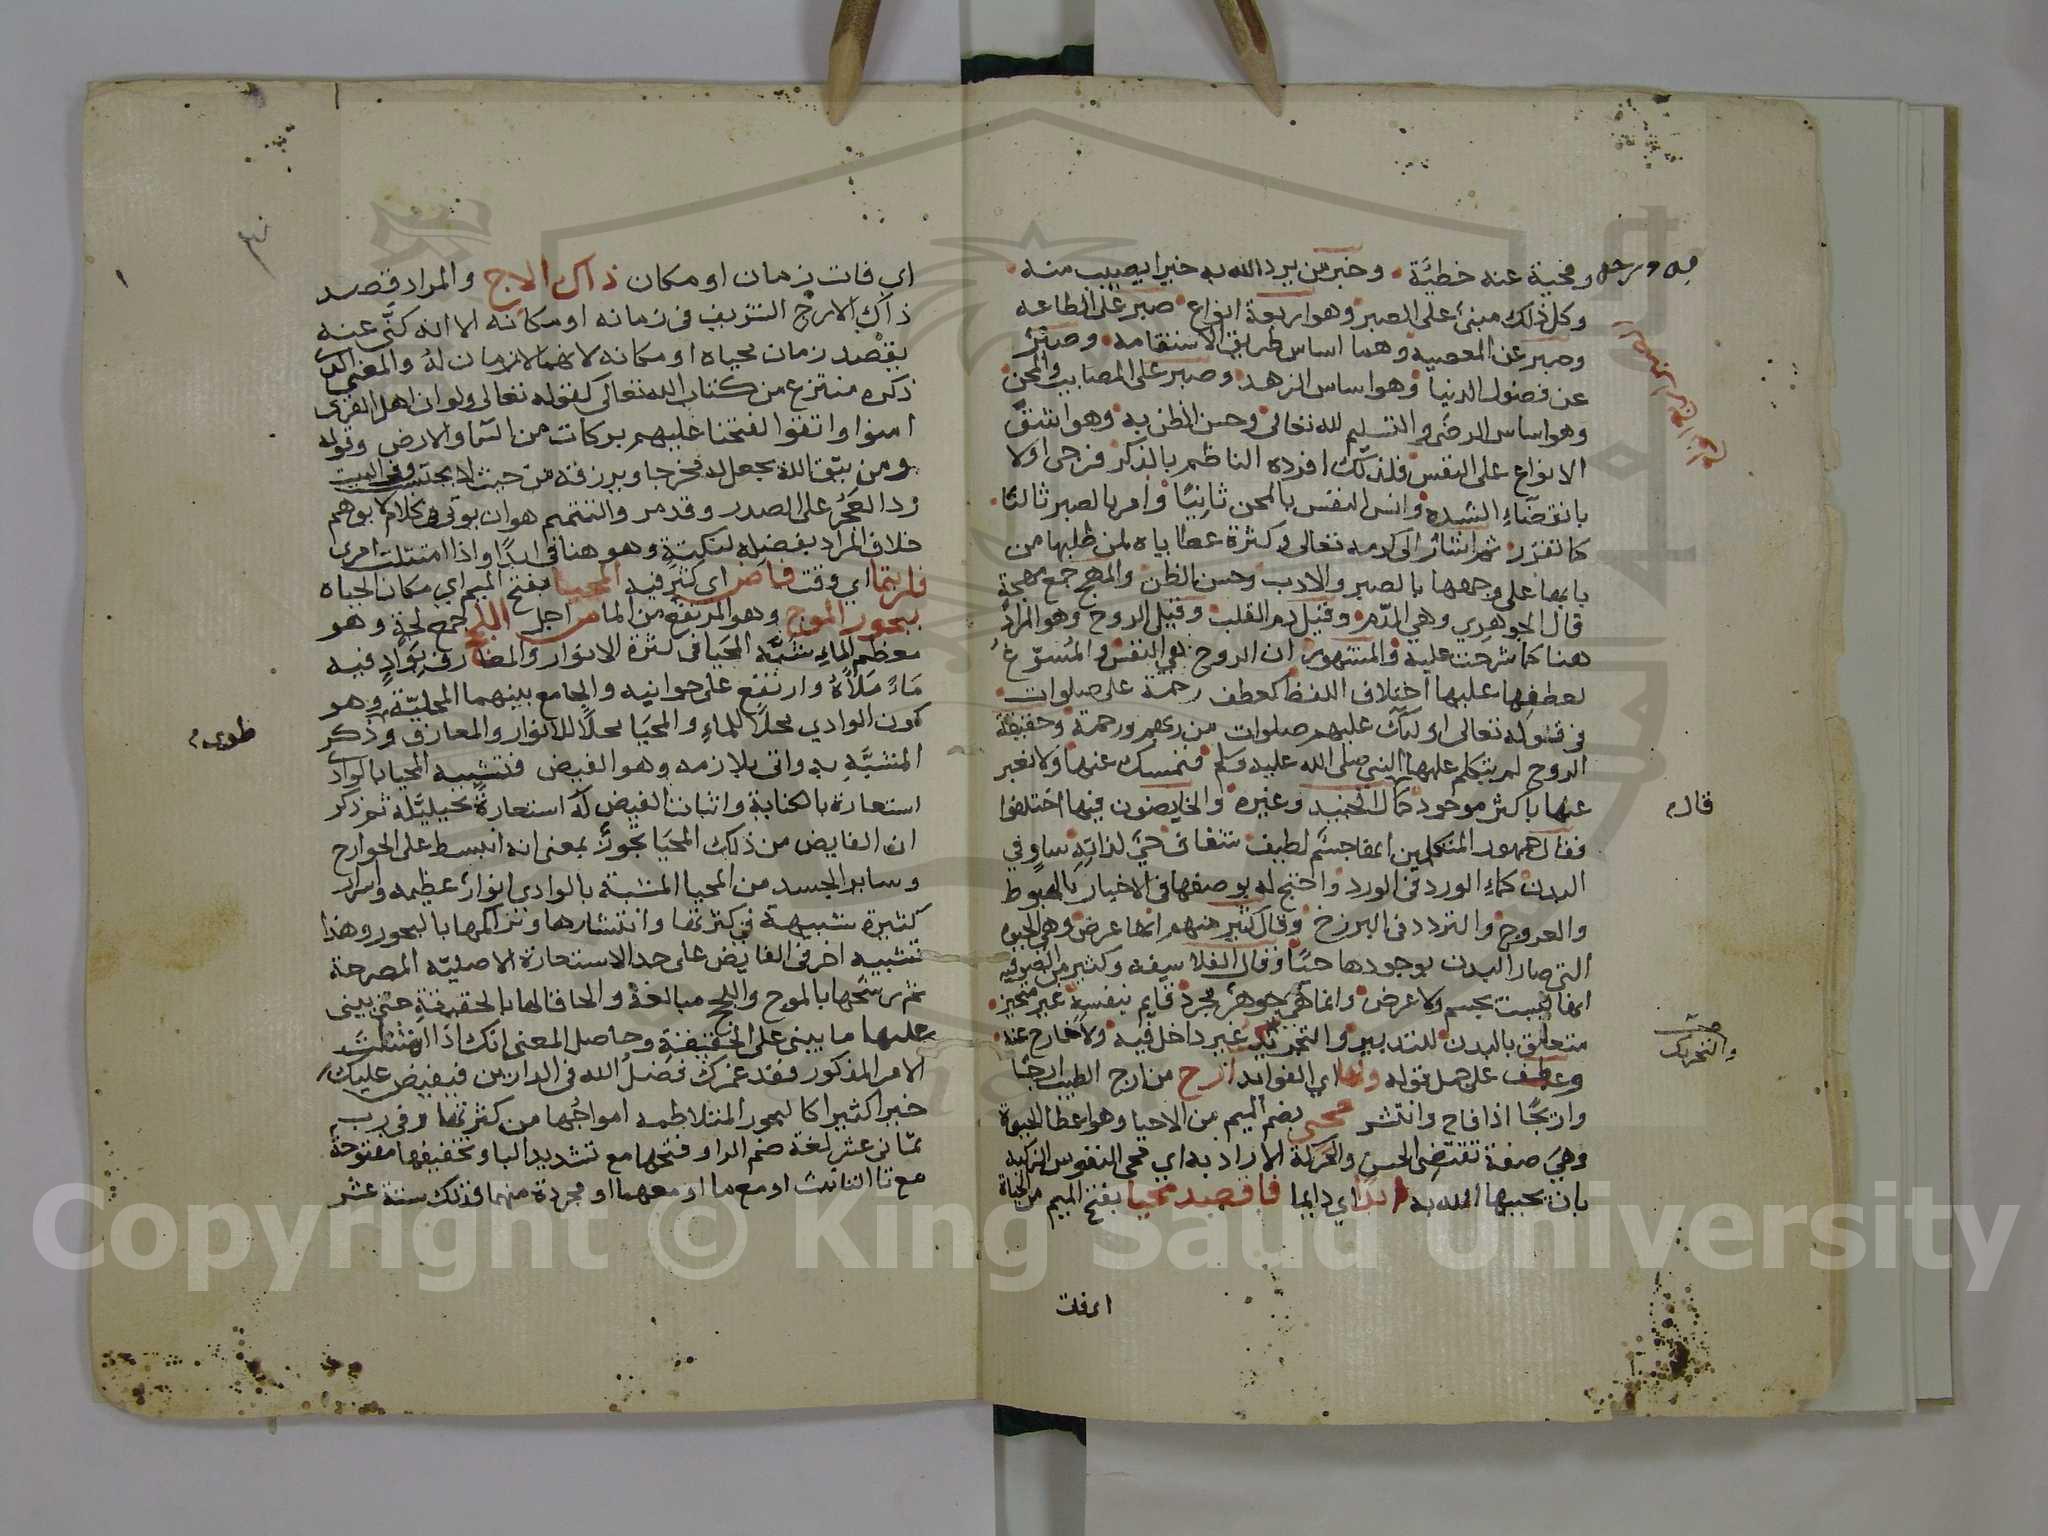 ومحية عنه خطيئة وخبر من يرد الله به خيرا يصيب منه
وكل ذلك مبنى على الصبر وهو اربعة انواع صبر على الطاعه
وصبر عن المعصيه وهما اساس طريق الاستقامه وصبر
عن فضول الدنيا وهو اساس الزهد وصبر على المصايب والمحن
وهو اساس الرضى والتسليم لله تعالى وحسن الظن به وهو اشق
الانواع على النفس فلذلك افرده الناظم بالذكر فرجى اولا
بانقضاء الشده وانس النفس بالمحن ثانيًا وامر بالصبر ثالثا
كما تقرر ثم اشار الى كرمه تعالى وكثرة عطاياه لمن طلبها من
بابها على وجهها بالصبر والادب وحسن الظن والمهج جمع مهجة
قال الجوهري وهي الدم وقيل دم القلب وقيل الروح وهو المراد
هنا كما شرحت عليه والمشهور ان الروح هي النفس والمسوّغ
لعطفها عليها اختلاف اللفظ كعطف رحمة على صلوات
فى قوله تعالى اوليك عليهم صلوات من ربهم ورحمة وحقيقة
الروح لم يتكلم عليها النبي صلى الله عليه وسلم فنمسك عنها ولا نعبر
عنها باكثر من موجود كما قال الجنيد وغيره والخايضون فيها اختلفوا
فقال جمهور المتكلمين انها جسم لطيف شفاف حيّ لذاته سار في
البدن كماء الورد فى الورد واحتج له بوصفها فى الاخبار بالهبوط
والعروج والتردد فى البرزخ وقال كثير منهم انها عرض وهي الحيوه
التي صار البدن بوجودها حيًا وقال الفلاسفه وكثير من الصوفيه
انها ليست بجسم ولا عرض وانما هي جوهر مجرد قايم بنفسه غير متحيز
متعلق بالبدن للتدبير والتحريك غير داخل فيه ولا خارج عنه
وعطف على جمل قوله ولها اي الفوايد ارج من ارج الطيب ارجًا
واريجًا اذا فاح وانتشر محى بضم الميم من الاحيا وهو اعطا الحيوة
وهي صفة تقتضى الحس والحركة الارادية اي محى النفوس الزكيه
بان يحييها الله به ابدا اي دايما فاقصد محيا بفتح الميم من الحياة
اى فات
قال
والتحريك
اي فات زمان او مكان ذاك الارج والمراد قصد
ذاك الارج الشريف فى زمانه او مكانه الا انه كنّى عنه
بقصد زمان محياه او مكانه لانهما لازمان له والمعنى الذى
ذكره منتزع من كتاب الله تعالى كقوله تعالى ولو ان اهل القرى
امنوا واتقوا لفتحنا عليهم بركات من السما والارض وقوله
ومن يتق الله يجعل له مخرجا ويرزقه من حيث لا يحتسب وفى البيت
رد العجز على الصدر وقد مر والتتميم هو ان يوتى فى كلام لا يوهم
خلاف المراد بفضله لنكتة وهو هنا فى ابدًا واذا امتثلت امرى
فلربتما اي وقت فاض اى كثر فيه المحيا بفتح الميم اي مكان الحياه
ببحور الموج وهو المرتفع من الما من اجل اللجج جمع لجة وهو
معظم الماء شبّه المحيا فى كثرة الانوار والمعارف بواد فيه
مَاءً مَلأَهُ وارتفع على جوانبه والجامع بينهما المحليّة وهو
كون الوادي محلًا للماء والمحيَا محلًا للانوار والمعارف وذكر
المشبَّه به واتى بلازمه وهو الفيض فتشبيه المحيا بالواد
استعارة بالكناية واثبات الفيض له استعارةٌ تخيليّة ثم ذكر
ان الفايض من ذلك المحيَا بحورٌ بمعنى انه انبسط على الجوارح
وساير الجسد من المحيا المشبة بالوادى انوارٌ عظيمه واسرار
كثيرة شبيهة فى كثرتها وانتشارها وتراكمها بالبحور وهذا
تشبيه اخر فى الفايض على حد الاستعارة الاصليّه المصرحة
ثم رشحها بالموج واللجج مبالغة والحاقا لها بالحقيقة حتى يبنى
عليها ما يبنى على الحقيقة وحاصل المعنى انك اذا امتثلت
الامر المذكور فقد غمرك فضل الله فى الدارين فيفيض عليك
خيرا كثيرا كالبحور المتلاطمه امواجُها من كثرتها وفى رب
ثمانى عشر لغة ضم الرا وفتحها مع تشديد البا وتخفيفها مفتوحة
مع تا التانيث او مع ما او معهما او مجردة منهما فذلك ستة عشر